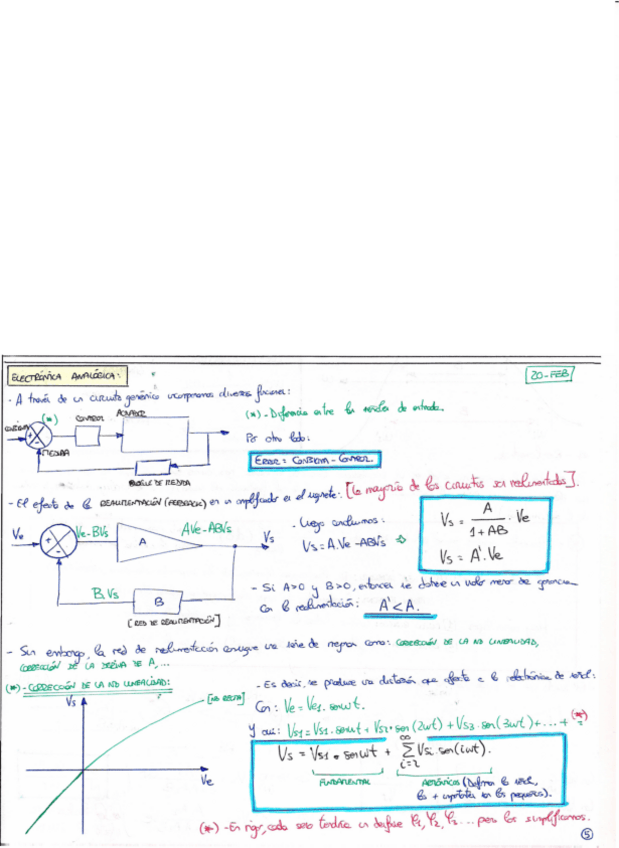 ELECTRÓNICA ANALÓGICA:
20-FEB
- A través de un circuito genérico incorporamos diversas funciones:
(*) CONTROL ACTUADOR
CONSIGNA
MEDIDA
BUCLE DE MEDIDA
(*)- Diferencia entre las señales de entrada.
Por otro lado:
ERROR = CONSIGNA - CONTROL.
- El efecto de la REALIMENTACIÓN (FEEDBACK) en un amplificador es el siguiente: [La mayoría de los circuitos son realimentados].
Ve
Ve-BVs
A
AVe-ABVs
Vs
B.Vs
B
[RED DE REALIMENTACIÓN]
. Luego concluimos:
Vs = A.Ve - ABVs ⇒
Vs = A / (1+AB) · Ve
Vs = A'.Ve
- Si A>0 y B>0, entonces se obtiene un valor menor de ganancia
con la realimentación: A'<A.
- Sin embargo, la red de realimentación consigue una serie de mejoras como: CORRECCIÓN DE LA NO LINEALIDAD,
CORRECCIÓN DE LA DERIVA DE A,...
(*)- CORRECCIÓN DE LA NO LINEALIDAD:
Vs
[NO RECTA]
Ve
- Es decir, se produce una distorsión que afecta a la electrónica de señal:
Con: Ve = Ve1. senwt.
Y así: Vs1 = Vs1. senwt + Vs2. sen(2wt) + Vs3. sen(3wt)+...+ (*)
Vs = Vs1 • senwt + ∞ Σ i=2 Vsi. sen(iwt).
FUNDAMENTAL
ARMÓNICOS (Deforma la señal,
los + importantes son los pequeños).
(*)- En rigor, cada seno tendría un desfase φ1, φ2, φ3 ... pero los simplificamos.
5